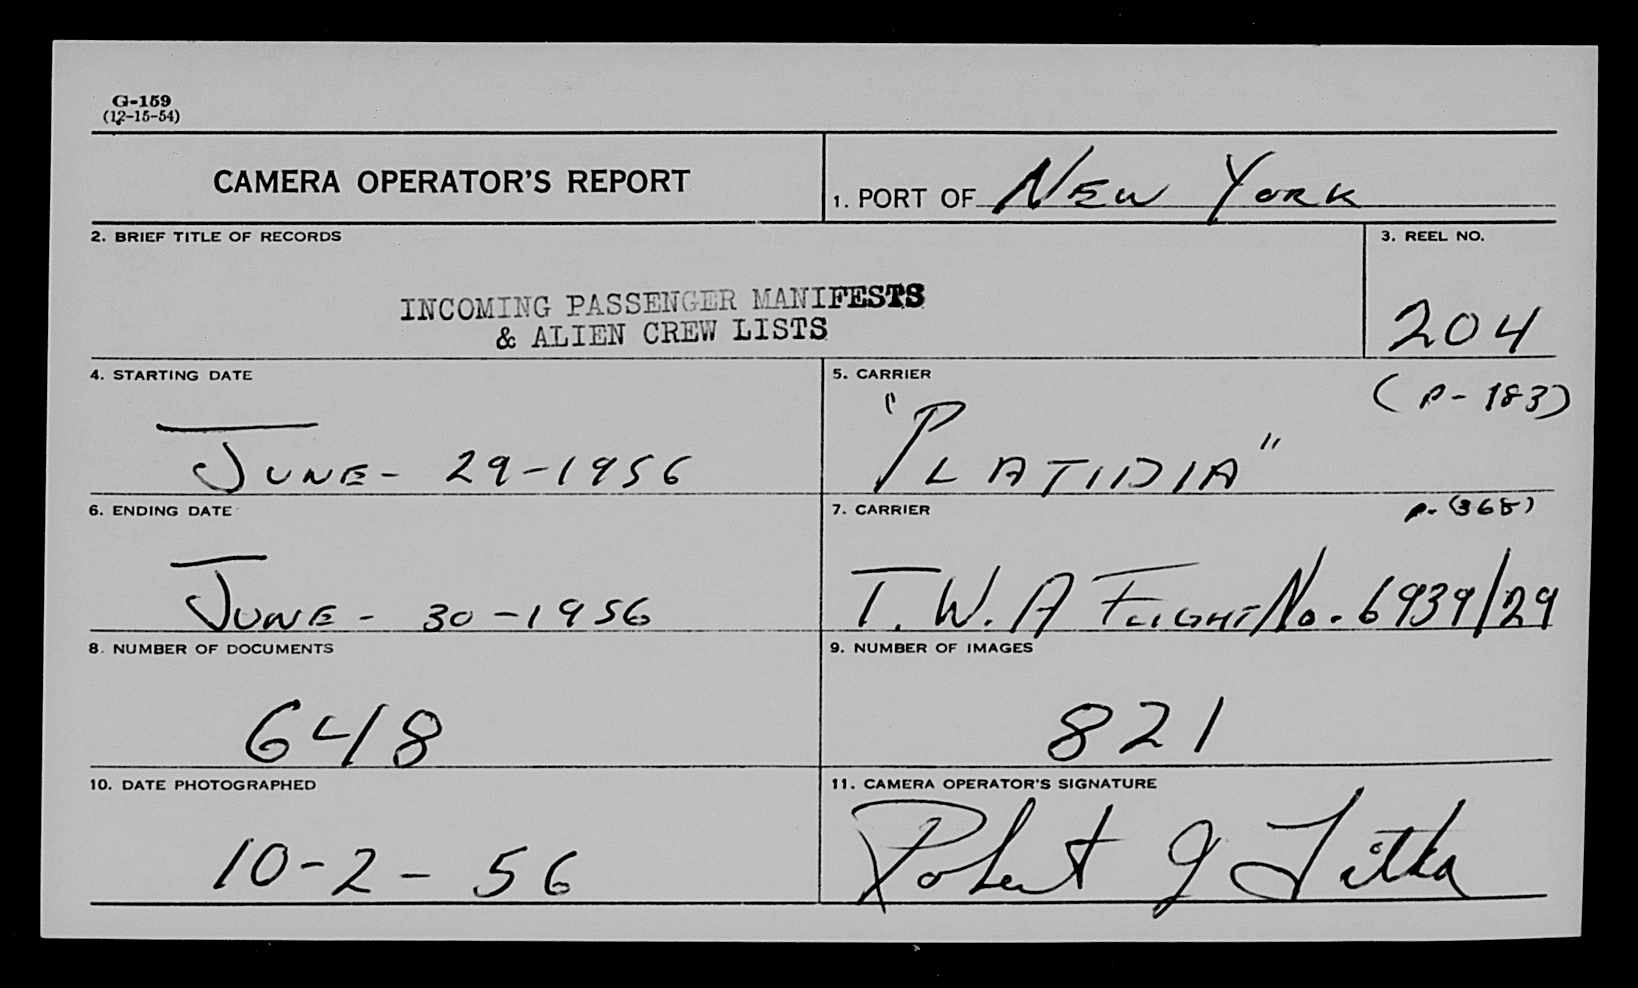 G-159
(12-15-54)
CAMERA OPERATOR'S REPORT
1. PORT OF New York
2. BRIEF TITLE OF RECORDS
3. REEL NO.
INCOMING PASSENGER MANIFESTS
& ALIEN CREW LISTS
204
4. STARTING DATE
5. CARRIER
(P-183)
June - 29-1956
"PLATIDIA"
6. ENDING DATE
7. CARRIER
P. (368)
June - 30-1956
T.W.A FLIGHT No. 6939/29
8. NUMBER OF DOCUMENTS
9. NUMBER OF IMAGES
648
821
10. DATE PHOTOGRAPHED
11. CAMERA OPERATOR'S SIGNATURE
10-2-56
Robert J